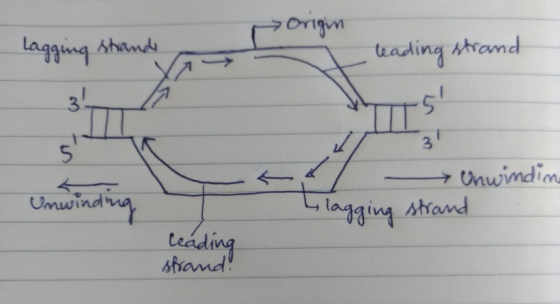 Origin
lagging strands
leading strand
3'
5'
5'
3'
Unwinding
Unwindin
lagging strand
leading
strand.